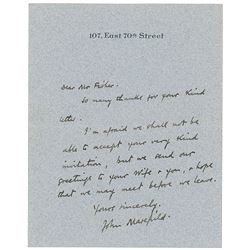 107, East 70th Street
Dear Mr Fisher.
So many thanks for your kind
letter.
I'm afraid we shall not be
able to accept your very kind
invitation, but we send our
greetings to your wife & you, & hope
that we may meet before we leave.
Yours sincerely.
John Masefield.